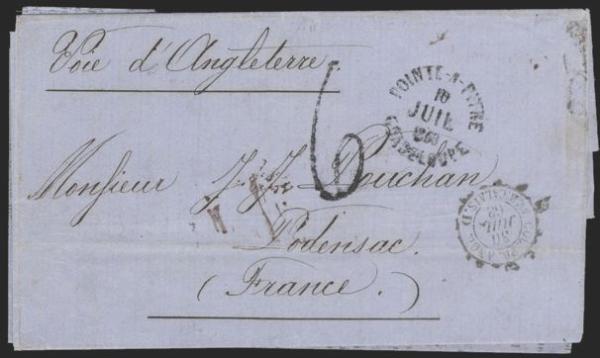 Voie d'Angleterre.
6
POINTE-A-PITRE
10
JUIL
GUADELOUPE
Monsieur J. Jre Pouchan
Podensac.
(France.)